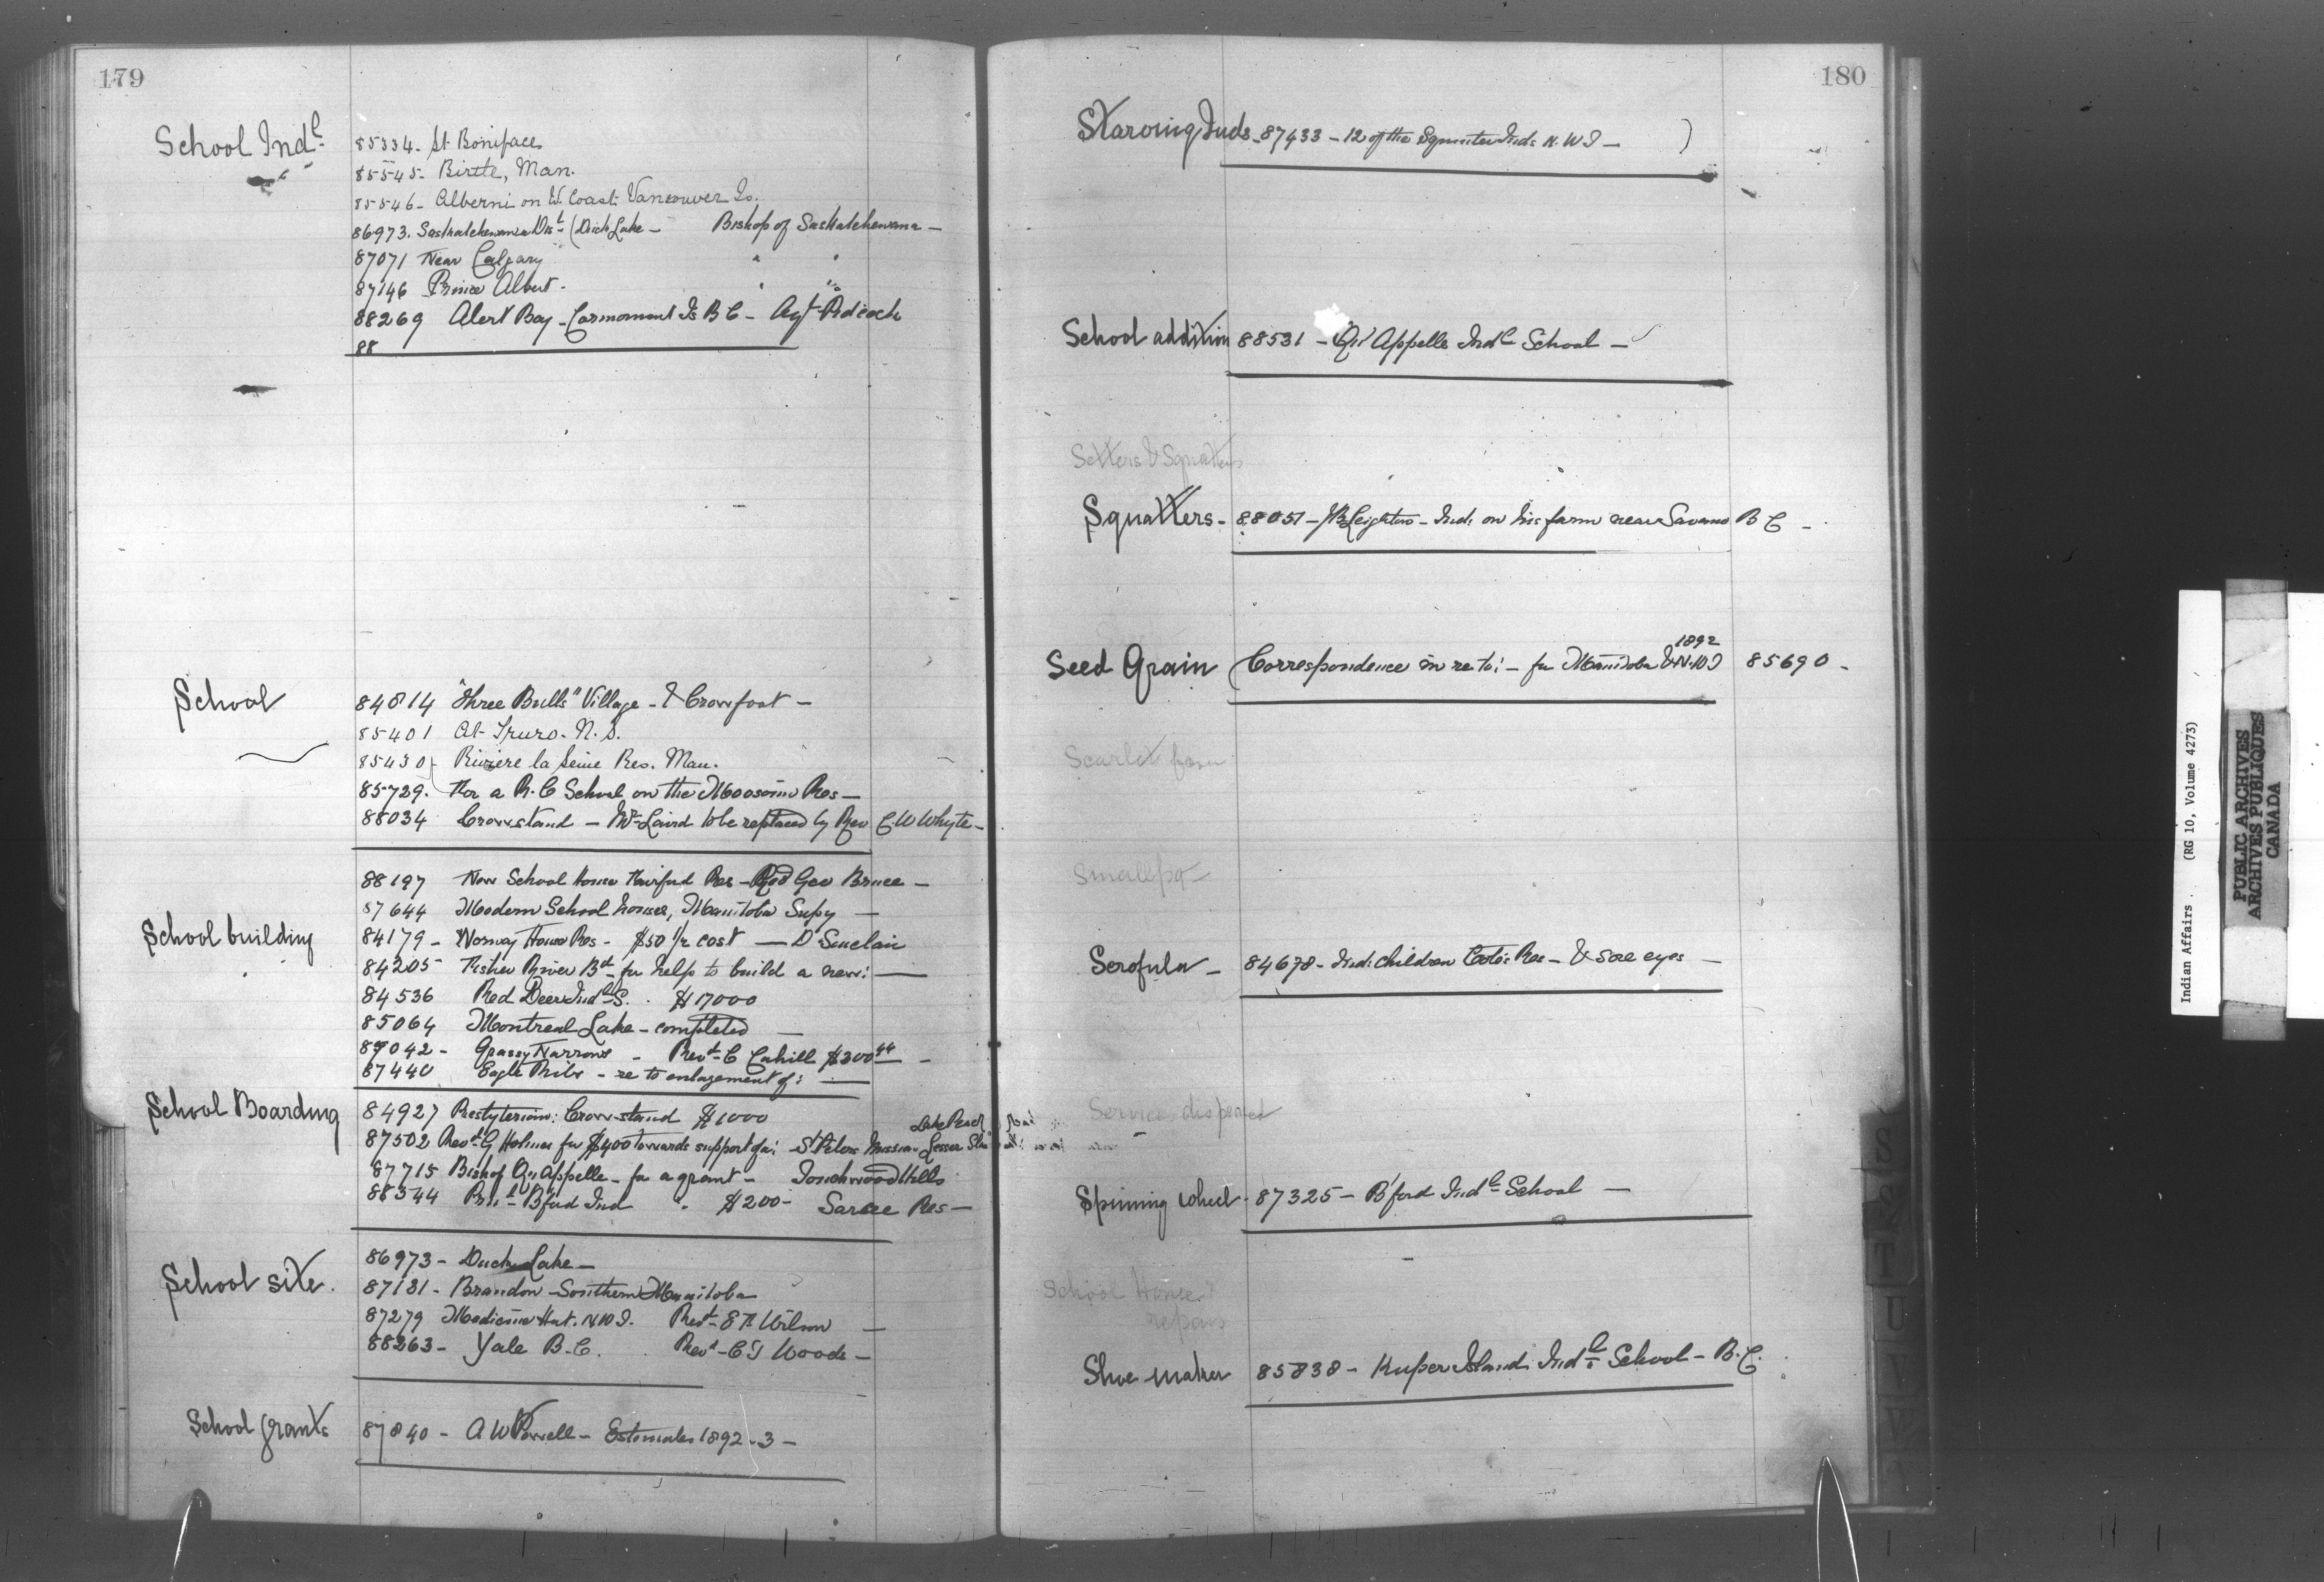 179
School Indl
85334. St. Boniface
85545. Birtle, Man.
85546 - Alberni on W. Coast Vancouver Is.
86973. Saskatchewan Dist (Duck Lake - Bishop of Saskatchewan -
87071 Near Calgary " "
87146 Prince Albert - " "
88269 Alert Bay - Cormorant Is B C - Agt Pidcock
88
School
84814 "Three Bulls" Village - & Crowfoot -
85401 At Truro. N. S.
85430 Riviere la Seine Res. Man.
85729. For a R. C School on the Moosomin Res -
88034 Crowstand - Mr Laird to be replaced by Rev C. W Whyte -
88197 New School House Fairford Res - Rev Geo Bruce -
87644 Modern School houses, Manitoba Supy -
School building
84179 - Norway House Res - $50 1/2 cost - D Sinclair
84205 Fisher River Bd - for help to build a new: -
84536 Red Deer Indl S. $17000
85064 Montreal Lake - completed -
87042 - Grassy Narrows - Revd C Cahill $300 44 -
87440 Eagle - re to enlargement of: -
School Boarding
84927 Presbyterian: Crowstand $1000
87502 Revd G Holmes for $400 towards support of a: St Peters Mission Lesser
87715 Bishop Qu'Appelle - for a grant - Touchwood Hills
88344 B'ford Ind " $200 - Sarcee Res -
School site.
86973 - Duck Lake -
87131 - Brandon - Southern Manitoba
87279 Medicine Hat. N.W.T. Revd E F. Wilson -
88263 - Yale B. C. Revd C T Woods -
School grants
87840 - A W Powell - Estimates 1892-3 -
180
Starving Inds - 87433 - 12 of the Inds N. W T -
School addition 88531 - Qu'Appelle Indl School -
Setters & Squatters
Squatters - 88051 - J B Leighton - Inds on his farm near Savona B C -
Seed Grain (Correspondence in re to: - for Manitoba & N.W.T 1892 85690 -
Scarlet fever
Smallpox
Scrofula - 84678 - Ind: children Cote's Res - & sore eyes -
Services dispensed
Spinning wheel - 87325 - B'ford Indl School -
School House
repairs
Shoe maker 85838 - Kuper Island Indl School - B. C.
S
T
U
V
W
Indian Affairs. (RG 10, Volume 4273)
PUBLIC ARCHIVES
ARCHIVES PUBLIQUES
CANADA